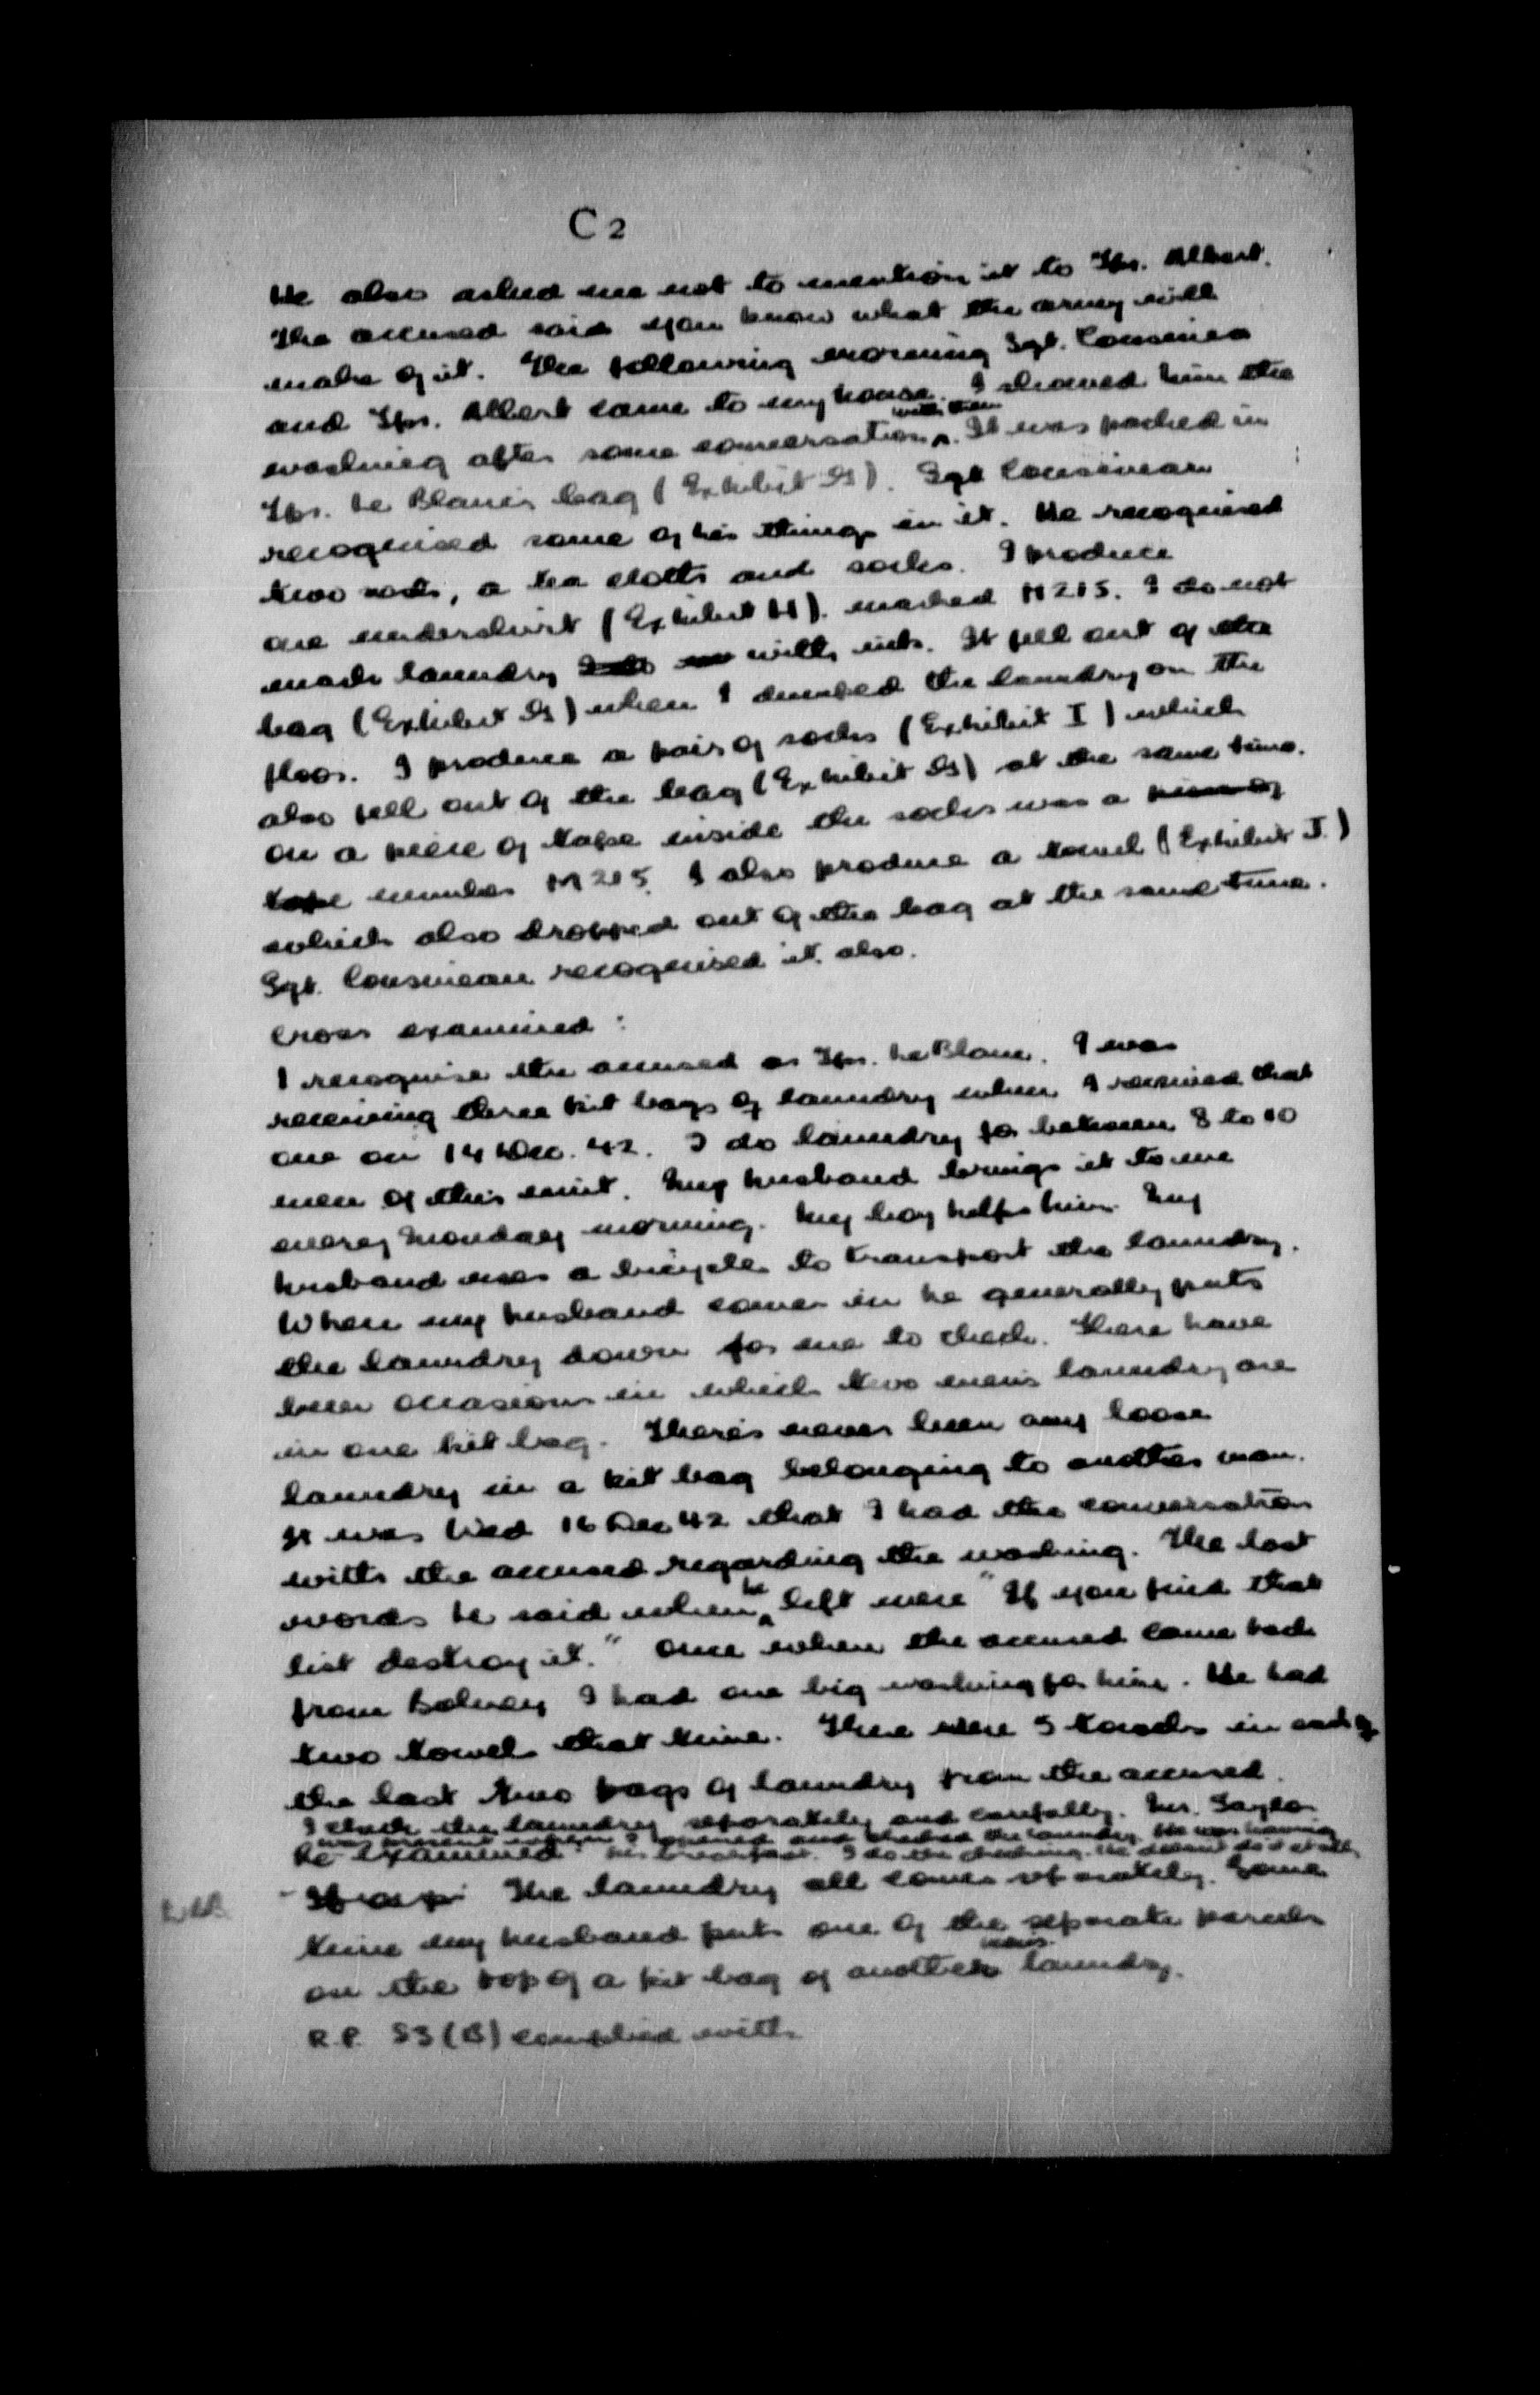 C 2
He also asked me not to mention it to Spr. Albert.
The accused said you know what the army will
make of it. The following morning Sgt. Cousineau
and Spr. Albert came to my house. I showed him the
washing after some conversation with them. It was packed in
Spr. Le Blanc's bag (Exhibit G). Sgt Cousineau
recognised some of his things in it. He recognised
two , a tea cloth and socks. I produce
one undershirt (Exhibit H). marked M215. I do not
mark laundry with ink. It fell out of the
bag (Exhibit G) when I dumped the laundry on the
floor. I produce a pair of socks (Exhibit I) which
also fell out of the bag (Exhibit G) at the same time.
On a piece of tape inside the socks was a piece of
tape number M215. I also produce a towel (Exhibit J)
which also dropped out of the bag at the same time.
Sgt. Cousineau recognised it also.
Cross examined :
I recognise the accused as Spr. Le Blanc. I was
receiving three kit bags of laundry when I received that
one on 14 Dec. 42. I do laundry for between 8 to 10
men of this unit. My husband brings it to me
every Monday morning. My boy helps him. My
husband uses a bicycle to transport the laundry.
When my husband comes in he generally puts
the laundry down for me to check. There have
been occasions in which two men's laundry are
in one kit bag. There's never been any loose
laundry in a kit bag belonging to another man.
It was Wed 16 Dec 42 that I had the conversation
with the accused regarding the washing. The last
words he said when he left were "If you find that
list destroy it." Once when the accused came back
from I had one big washing for him. He had
two towels that time. There were 5 towels in each of
the last two bags of laundry from the accused.
I check the laundry separately and carefully. Mr. Taylor
was present when I opened and checked the laundry. He was having
his breakfast. I do the checking. He doesn't do it at all.
Re-examined:
The laundry all comes separately. Some
time my husband puts one of the separate parcels
on the top of a kit bag of another man's laundry.
R.P. 83 (B) complied with